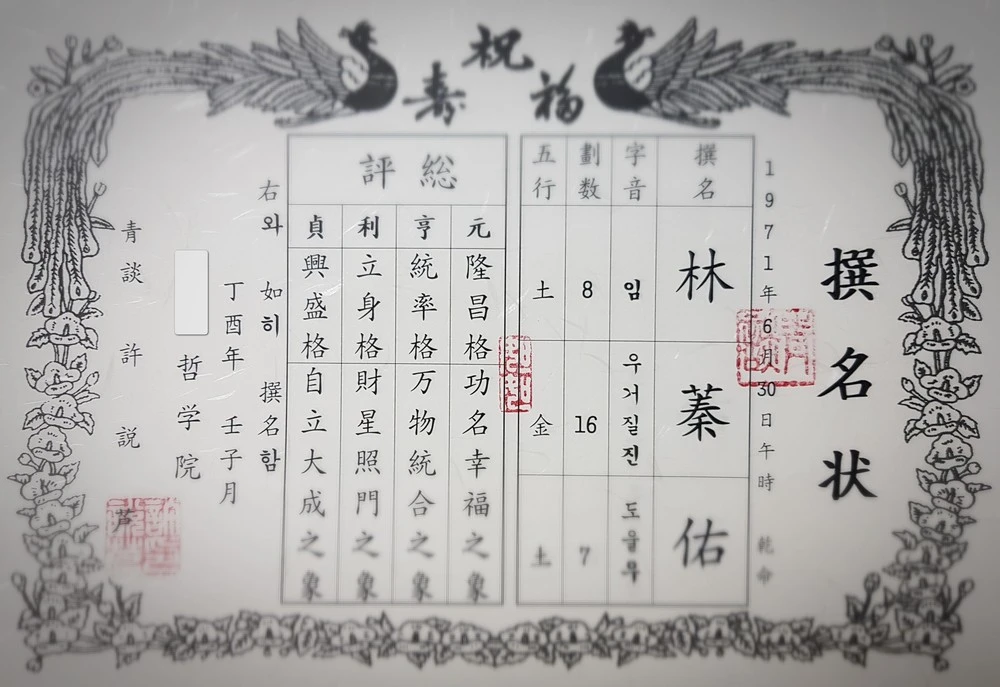 祝
寿 福
撰名状
1971年6月30日午時 乾命
撰名 林蓁佑
字音 임 우거질진 도울우
劃数 8 16 7
五行 土 金 土
総評
元 隆昌格 功名幸福之象
亨 統率格 万物統合之象
利 立身格 財星照門之象
貞 興盛格 自立大成之象
右와 如히 撰名함
丁酉年 壬子月
哲学院
青談 許説 芦